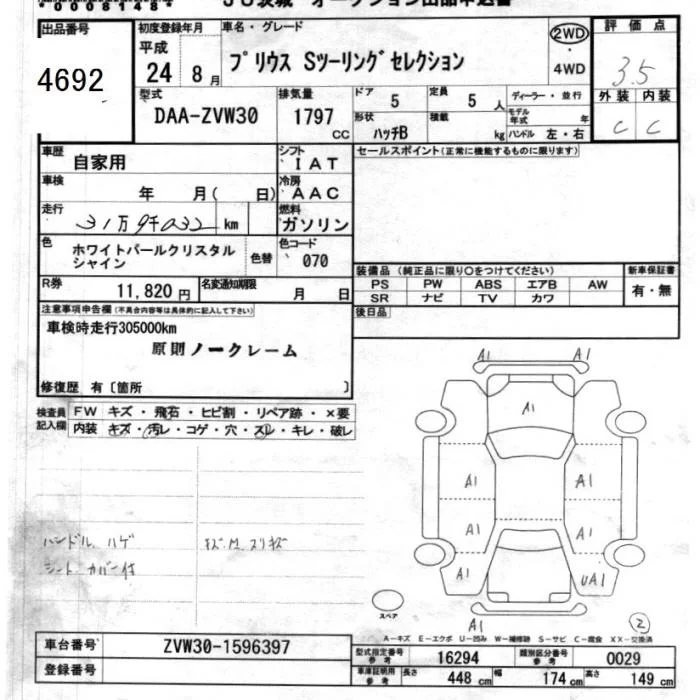 00081484 JU茨城 オークション出品申込書
出品番号
4692
初度登録年月
平成
24 8 月
車名・グレード
プリウス Sツーリングセレクション
2WD
・
4WD
評価点
3.5
外装 内装
C C
型式
DAA-ZVW30
排気量
1797
CC
ドア
5
定員
5 人
ディーラー・並行
モデル年式 年
形状
ハッチB
積載
kg
ハンドル 左・右
車歴
自家用
シフト
IAT
セールスポイント(正常に機能するものに限ります)
車検
年 月( 日)
冷房
AAC
走行
31万9千032 km
燃料
ガソリン
色
ホワイトパールクリスタル
シャイン
色替
色コード
070
装備品(純正品に限り○をつけてください)
新車保証書
PS PW ABS エアB AW
有・無
SR ナビ TV カワ
R券
11,820 円
名変通知期限
月 日
後日品
注意事項申告欄(不具合内容等は具体的に記入して下さい)
車検時走行305000km
原則ノークレーム
修復歴 有〔箇所 〕
検査員
記入欄
FW キズ・飛石・ヒビ割・リペア跡・×要
内装 キズ・汚レ・コゲ・穴・スレ・キレ・破レ
ハンドル ハゲ
シート カバー付
A1 A1
A1
A1 A1
A1 A1
A1 UA1
スペア
A1
2
A−キズ E−エクボ U−凹み W−補修跡 S−サビ C−腐食 XX−交換済
車台番号
ZVW30-1596397
登録番号
型式指定番号
参考
16294
類別区分番号
参考
0029
車庫証明用
参考
長さ 448 cm 幅 174 cm 高さ 149 cm